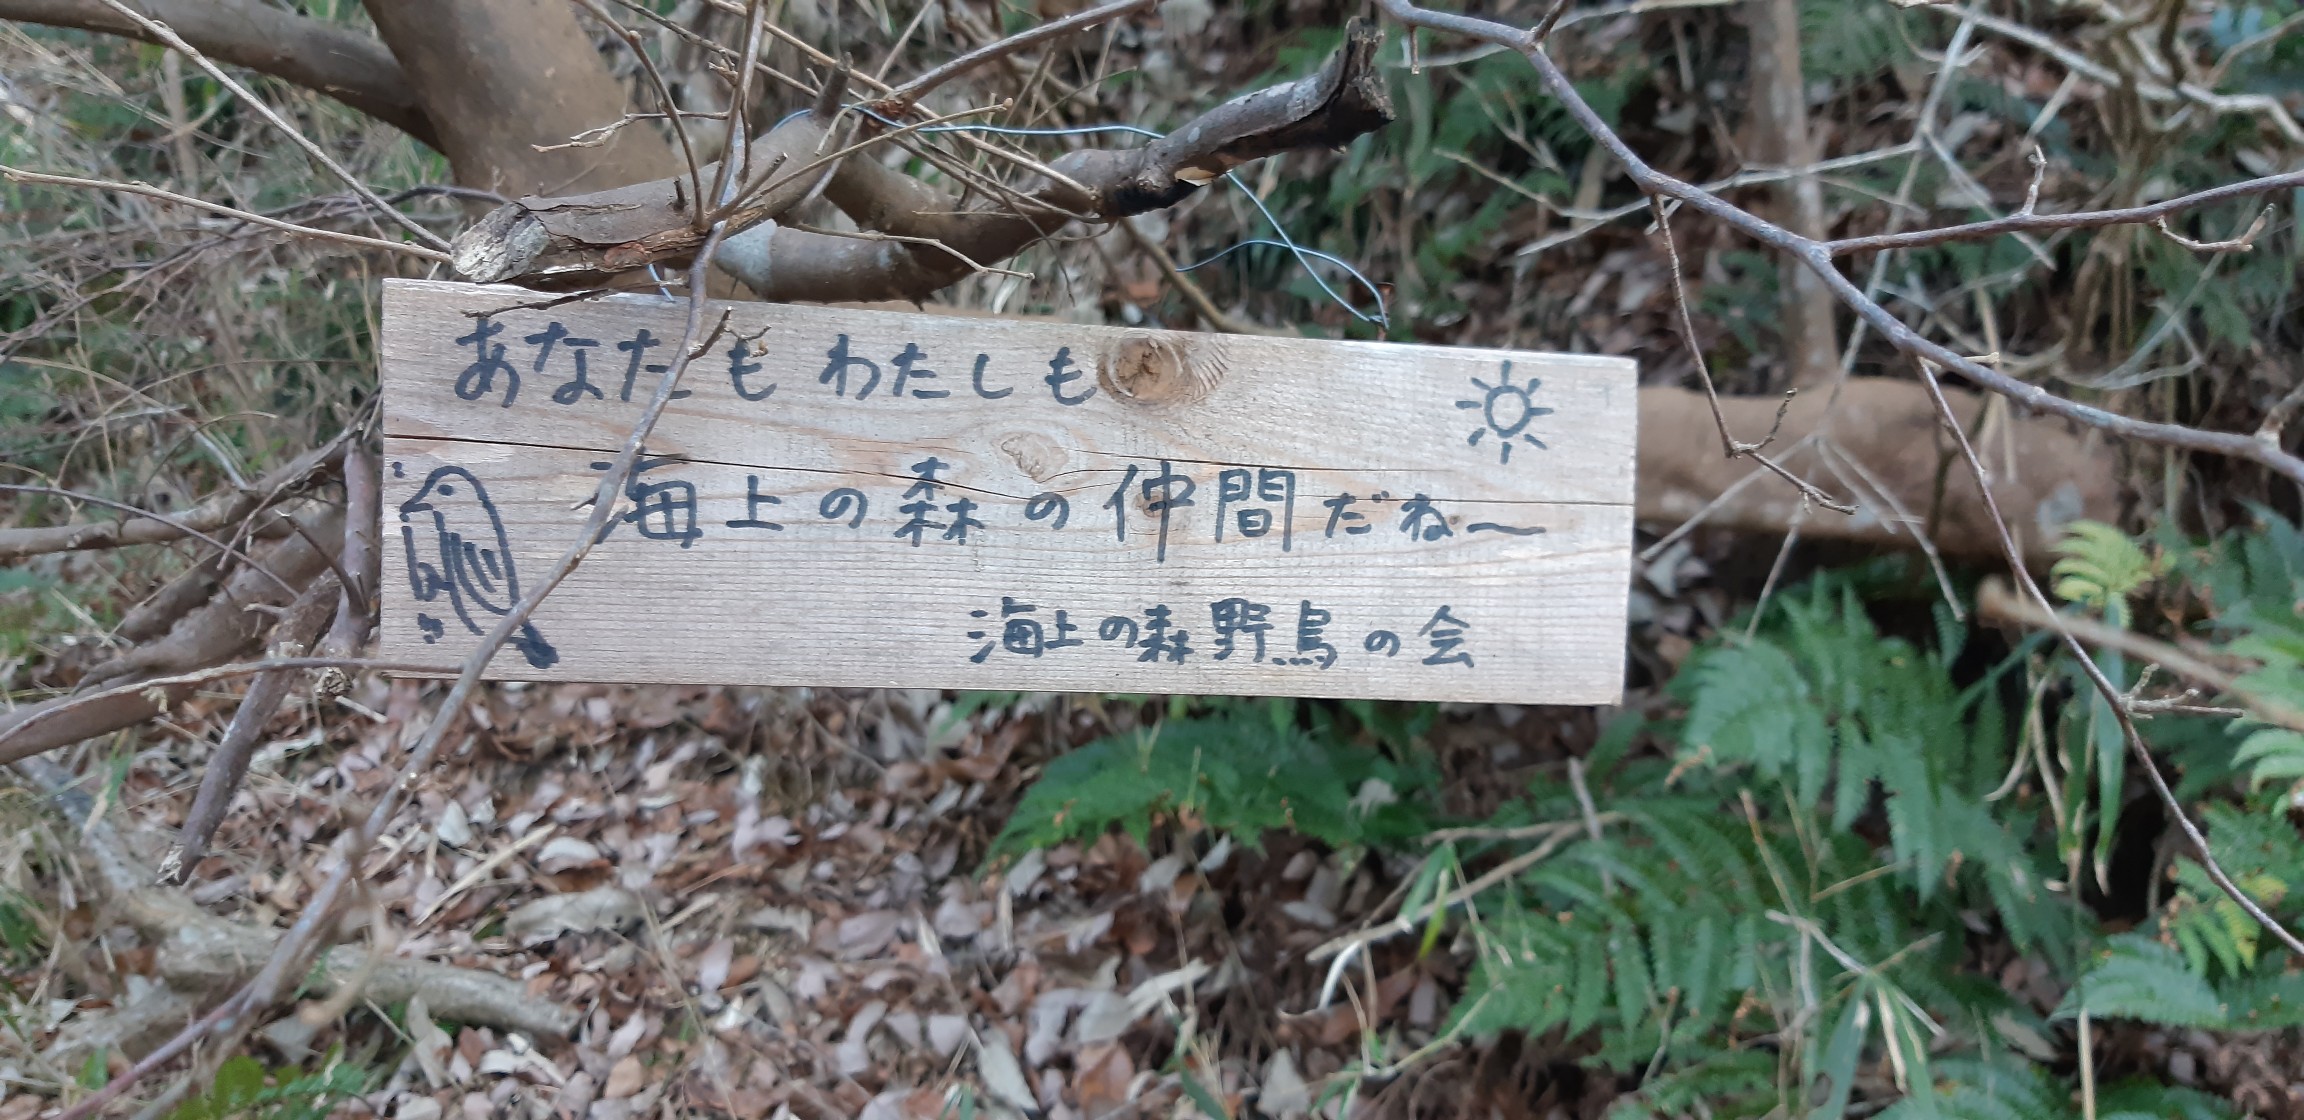 あなたもわたしも
海上の森の仲間だね〜
海上の森野鳥の会